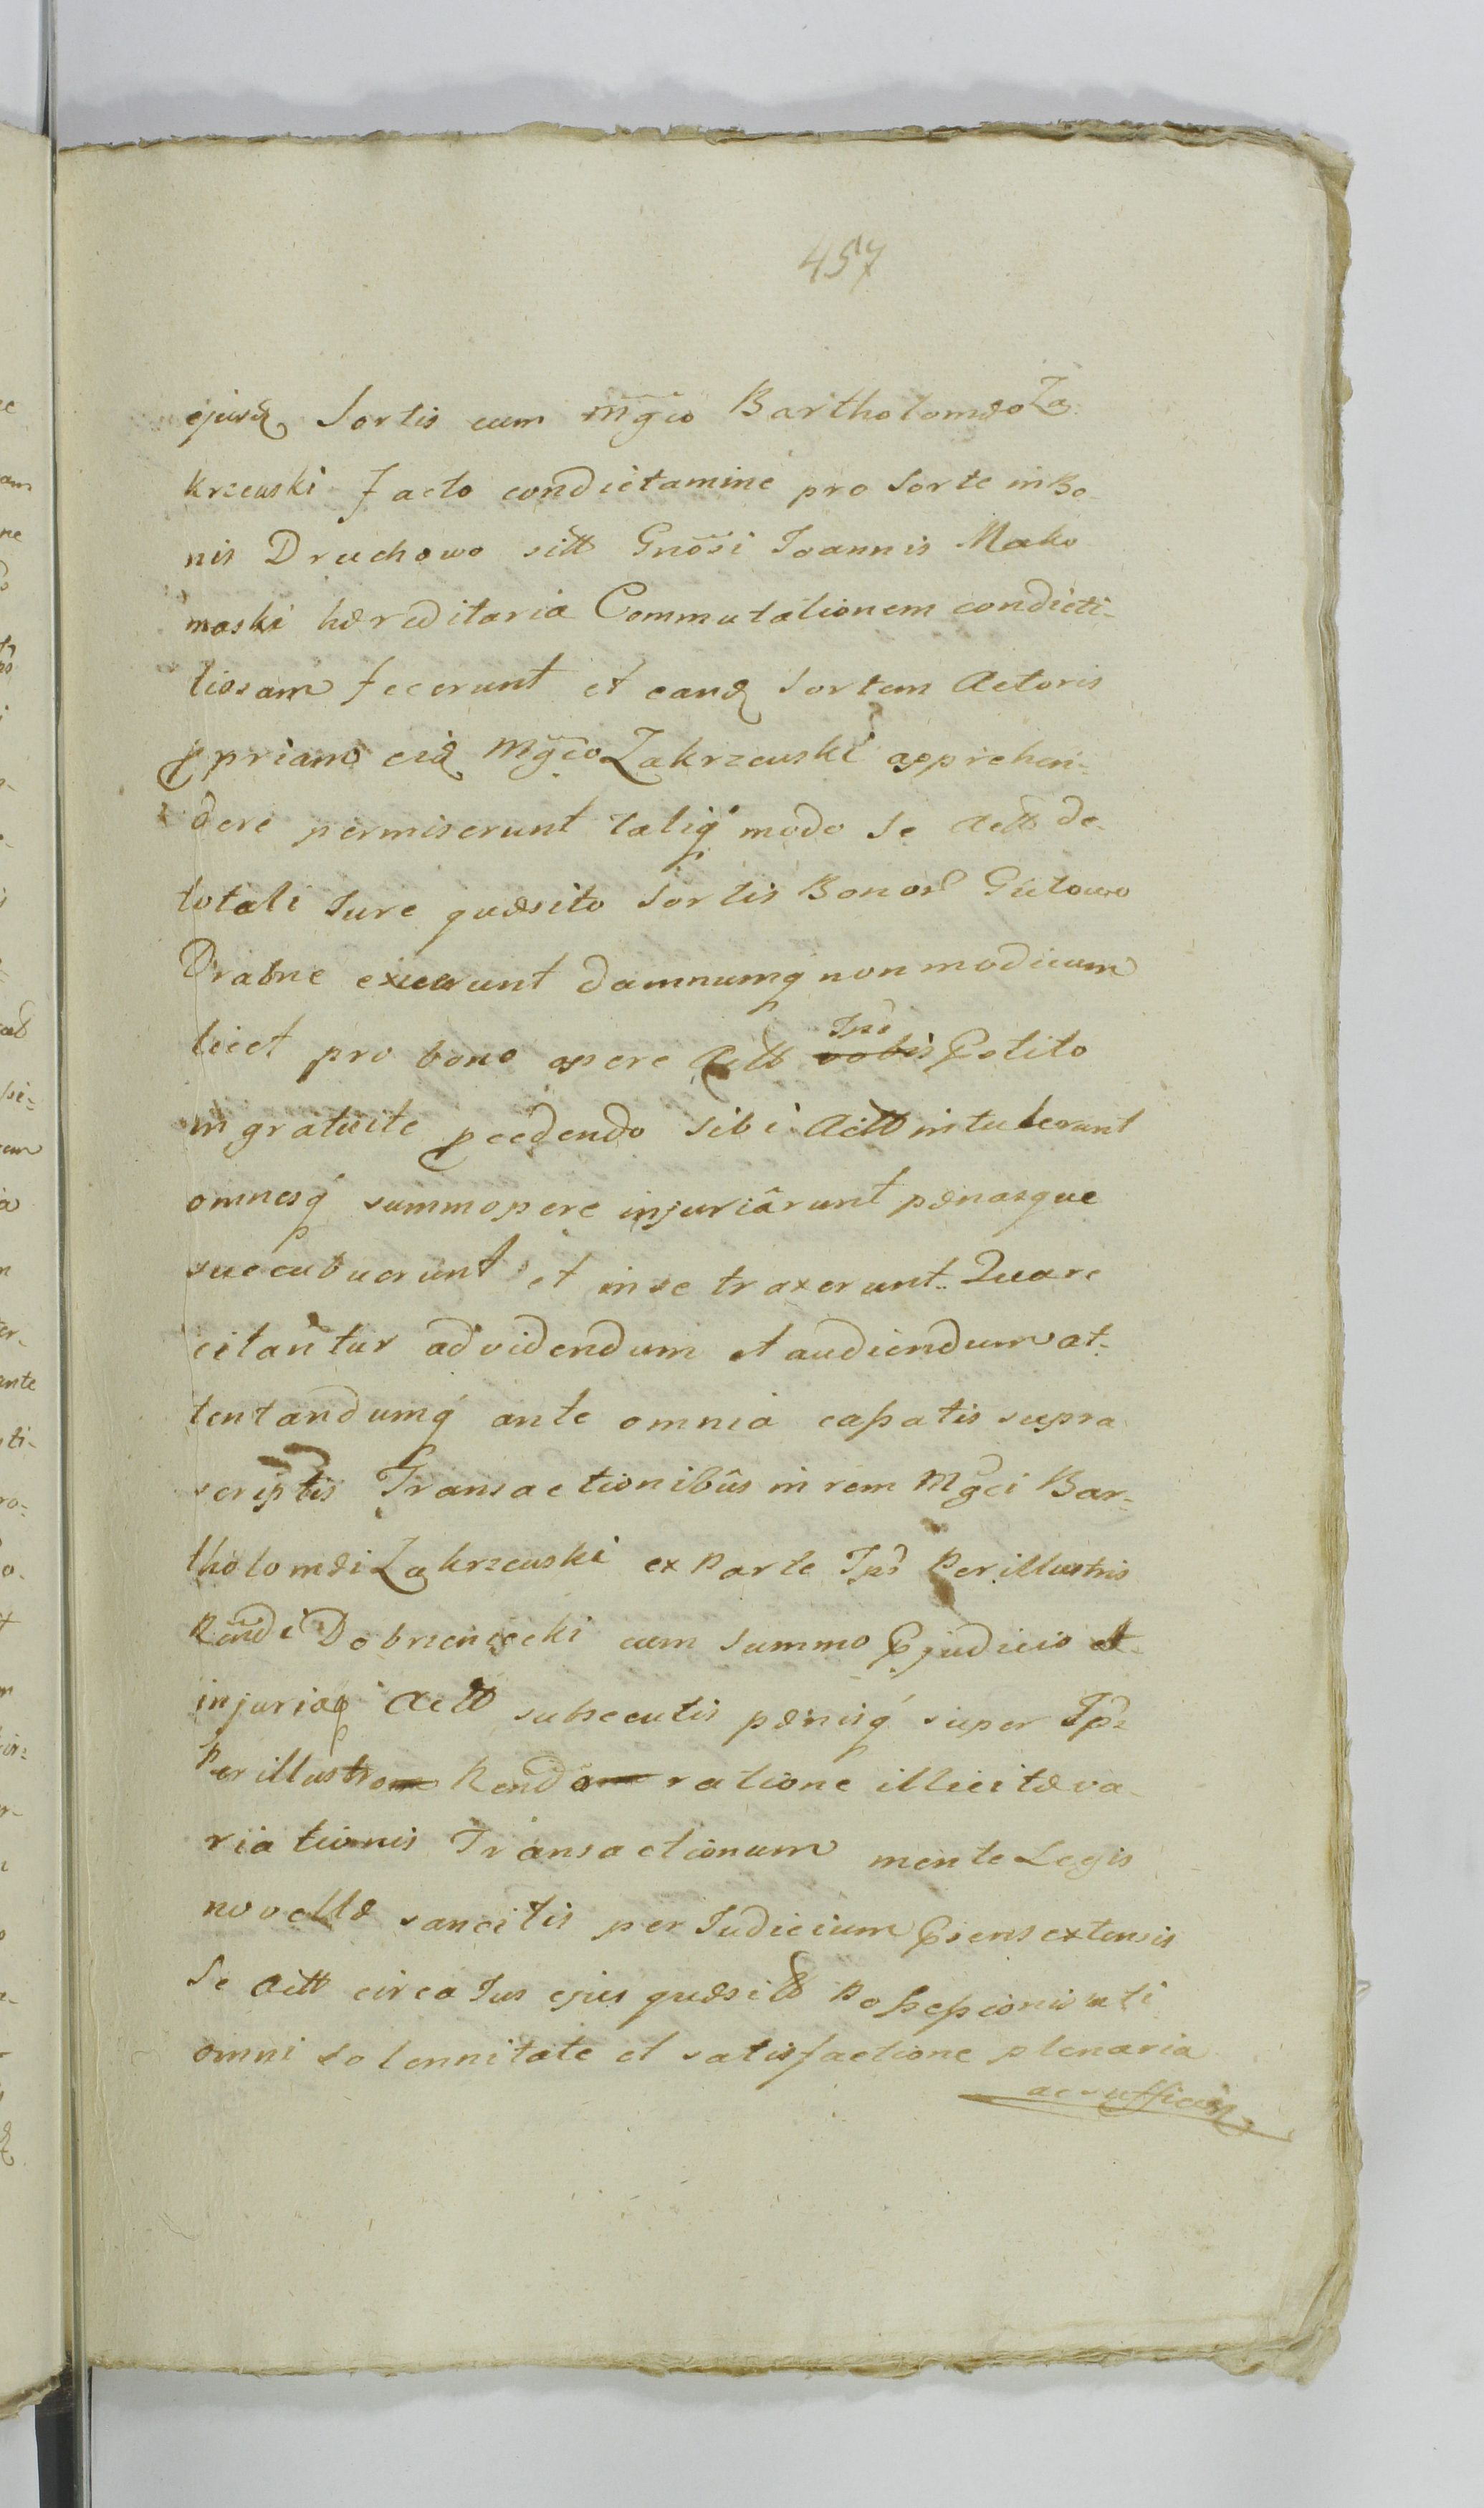 457
ejusđ Sortis cum Mg̃co Bartholomæo Za
krzewski facto condictamine pro Sorte in Bo
nis Druchowo sitt Gnõsi Joannis Mako
maski hæreditaria Commutationem condicti-
tiosam fecerunt et eanđ Sortem Actoris
ppriam eiđ Mg̃co Zakrzewski apprehen-
dere permiserunt taliq́ modo Se Actt de
totali Jure quæsito Sortis Bonor Gutowo
Drabne exuerunt damnumq́ non modicum
licet pro bono opere Actt vobis Ips Petito
ingratuite pcedendo sibi Actt intulerunt
omnesq́ summopere injuriârunt pænasque
succubuerunt et in se traxerunt. Quare
citantur ad videndum et audiendum at-
tentandumq́ ante omnia cassatis supra
scriptis Transactionibûs in rem Mgci Bar-
tholomæi Zakrzewski ex Parte Ips Perillustris
Rñdi Dobrzeniecki cum Summo Pjudicio et
injuriaq́ Actt subsecutis pænisq́ super Ips
Perillustrem Rendom ratione illicitæ va-
riationis Transactionum mente Legis
novellæ sancitis per Judicium Psens extensis
Se Actt circa Jus ejus quæsitt Possessionis uti
omni solennitate et satisfactione plenaria
ac sufficien